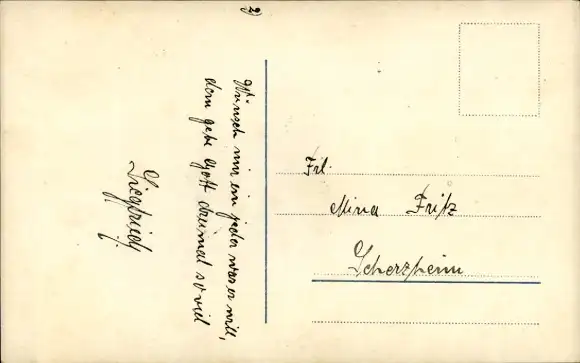 2)
Wünsch mir ein jeder was er will,
dem gebe Gott dreimal so viel
Siegfried.
Frl.
Mina Fritz
Scherzheim